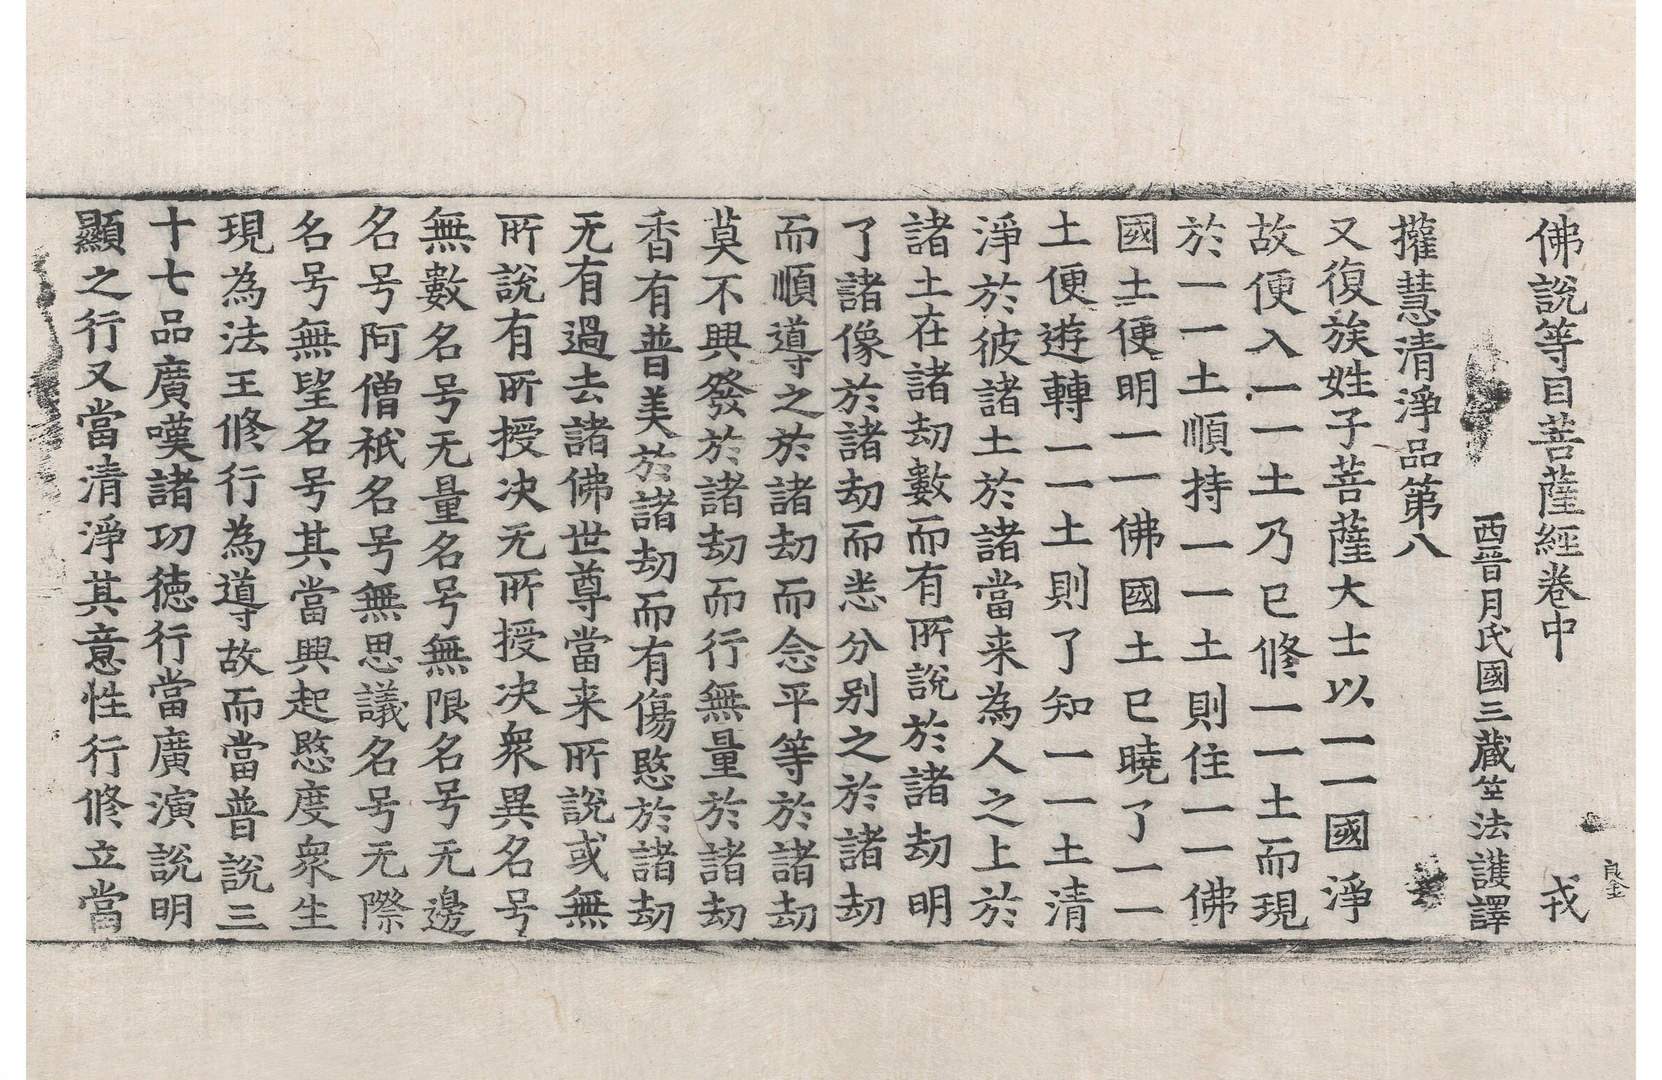 佛說等目菩薩經卷中 戎
西晉月氏國三藏竺法護譯
擢慧清淨品第八
又復族姓子菩薩大士以一一國淨
故便入一一土乃已修一一土而現
於一一土順持一一土則住一一佛
國土便明一一佛國土已曉了一一
土便遊轉一一土則了知一一土清
淨於彼諸土於諸當来為人之上於
諸土在諸劫數而有所說於諸劫明
了諸像於諸劫而悉分別之於諸劫
而順導之於諸劫而念平等於諸劫
莫不興發於諸劫而行無量於諸劫
香有普美於諸劫而有傷愍於諸劫
无有過去諸佛世尊當来所說或無
所說有所授决无所授决衆異名号
無數名号无量名号無限名号无邊
名号阿僧祇名号無思議名号无際
名号無望名号其當興起愍度衆生
現為法王修行為導故而當普說三
十七品廣嘆諸功德行當廣演說明
顯之行又當清淨其意性行修立當